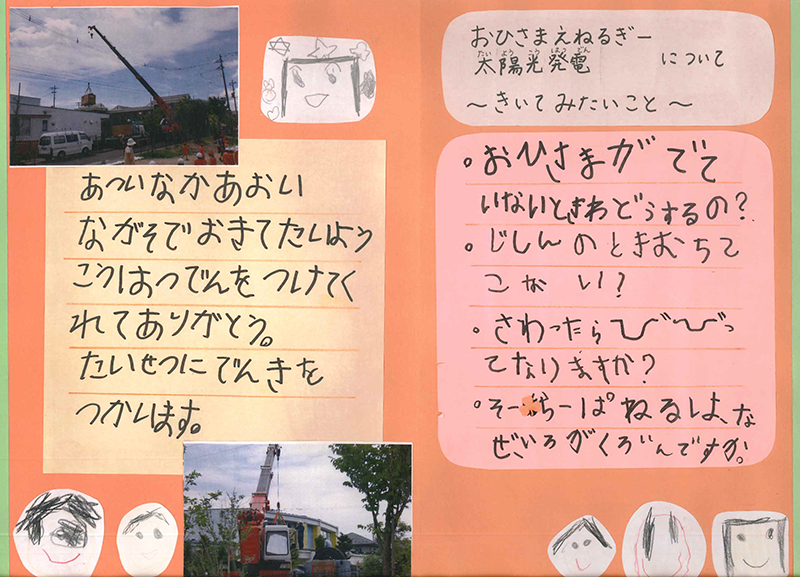 あついなかあおい
ながそでおきてたいよう
こうはつでんをつけてく
れてありがとう。
たいせつにでんきを
つかいます。
おひさまえねるぎー
たいようこうはつでん
太陽光発電 について
～きいてみたいこと～
・おひさまがでて
いないときわどうするの?
・じしんのときおちて
こない?
・さわったらびびっ
てなりますか?
・そーらーぱねるは、な
ぜいろがくろいんですか。